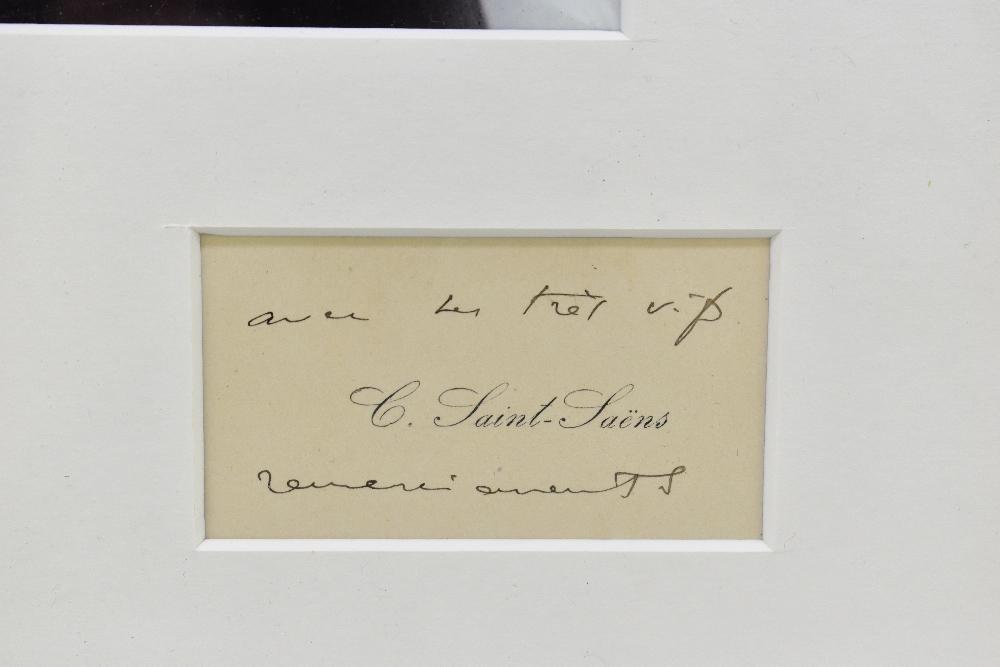 avec ses très vifs
C. Saint-Saëns
remerciements